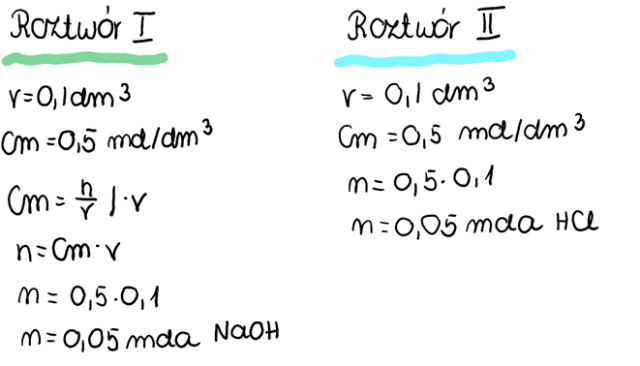 Roztwór I
v=0,1dm³
Cm=0,5 mol/dm³
Cm=n/v |·v
n=Cm·v
n=0,5·0,1
n=0,05 mola NaOH
Roztwór II
v=0,1 dm³
Cm=0,5 mol/dm³
n=0,5·0,1
n=0,05 mola HCl